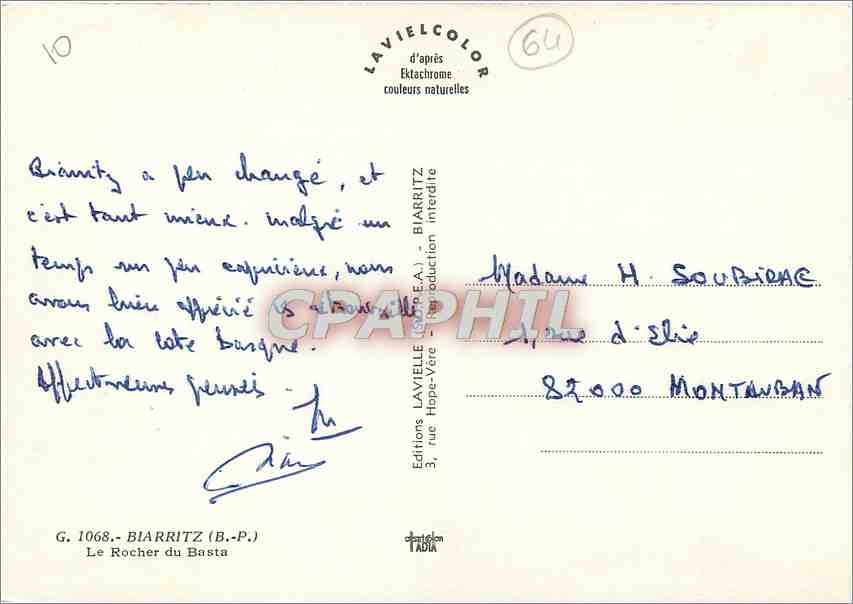 10
64
LAVIELCOLOR
d'après
Ektachrome
couleurs naturelles
Biarritz a peu changé, et
c'est tant mieux. malgré un
temps un peu capricieux, nous
avons bien apprécié les retrouvailles
avec la Côte basque.
Affectueuses pensées.
Editions LAVIELLE (S.P.E.A.) - BIARRITZ
3, rue Hope-Vère - Reproduction interdite
Madame H. SOUBIRAC
rue d'Elie
82000 MONTAUBAN
G. 1068.- BIARRITZ (B.-P.)
Le Rocher du Basta
CPAPHIL